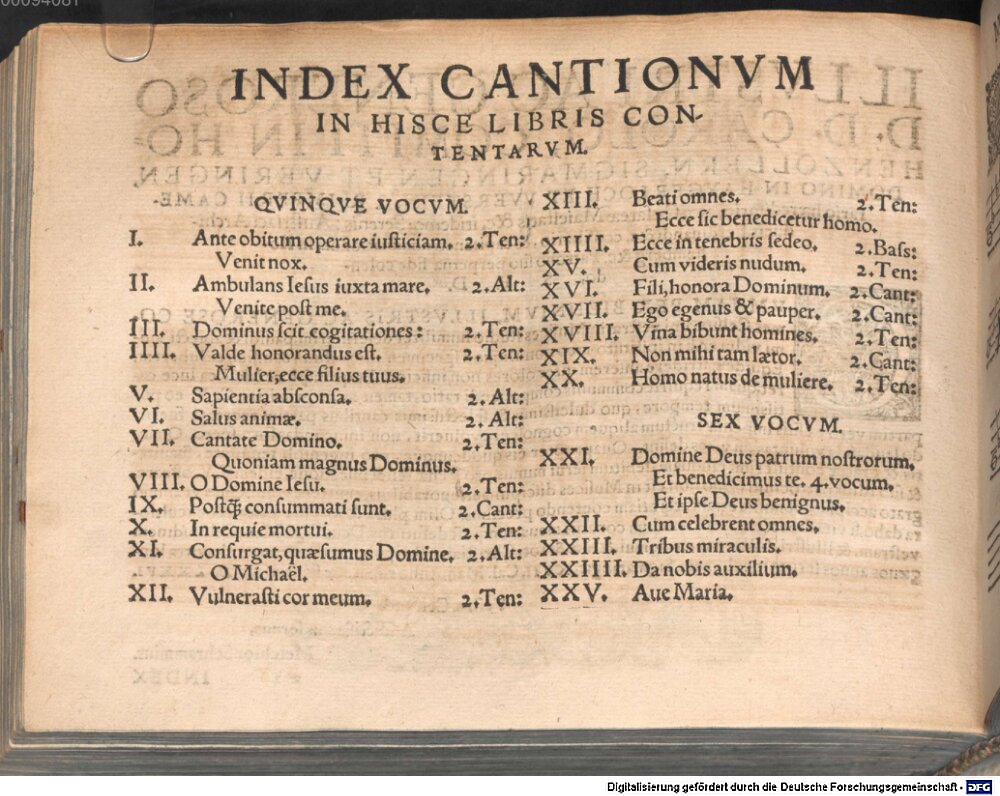 INDEX CANTIONVM
IN HISCE LIBRIS CON-
TENTARVM.
QVINQVE VOCVM.
I. Ante obitum operare iusticiam. 2. Ten:
Venit nox.
II. Ambulans Iesus iuxta mare. 2. Alt:
Venite post me.
III. Dominus scit cogitationes: 2. Ten:
IIII. Valde honorandus est. 2. Ten:
Mulier, ecce filius tuus.
V. Sapientia absconsa. 2. Alt:
VI. Salus animæ. 2. Alt:
VII. Cantate Domino. 2. Ten:
Quoniam magnus Dominus.
VIII. O Domine Iesu. 2. Ten:
IX. Postq̃ consummati sunt. 2. Cant:
X. In requie mortui. 2. Ten:
XI. Consurgat, quæsumus Domine. 2. Alt:
O Michaël.
XII. Vulnerasti cor meum. 2. Ten:
XIII. Beati omnes. 2. Ten:
Ecce sic benedicetur homo.
XIIII. Ecce in tenebris sedeo. 2. Bass:
XV. Cum videris nudum. 2. Ten:
XVI. Fili, honora Dominum. 2. Cant:
XVII. Ego egenus & pauper. 2. Cant:
XVIII. Vina bibunt homines. 2. Ten:
XIX. Non mihi tam lætor. 2. Cant:
XX. Homo natus de muliere. 2. Ten:
SEX VOCVM.
XXI. Domine Deus patrum nostrorum.
Et benedicimus te. 4. vocum.
Et ipse Deus benignus.
XXII. Cum celebrent omnes.
XXIII. Tribus miraculis.
XXIIII. Da nobis auxilium.
XXV. Aue Maria.
Digitalisierung gefördert durch die Deutsche Forschungsgemeinschaft - DFG